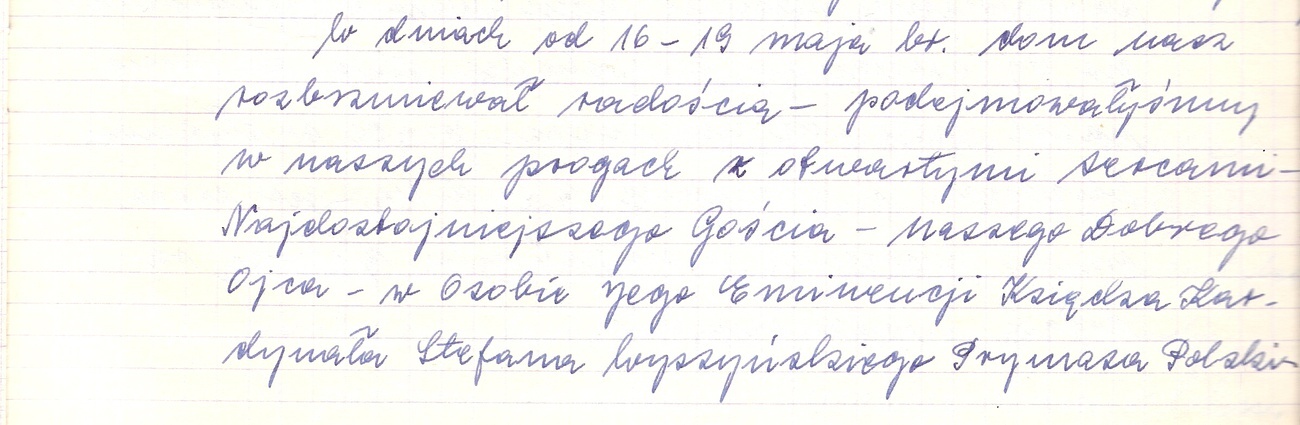 W dniach od 16 – 19 maja br. dom nasz
rozbrzmiewał radością – podejmowałyśmy
w naszych progach z otwartymi sercami –
Najdostojniejszego Gościa – naszego Dobrego
Ojca – w Osobie Jego Eminencji Księdza Kar-
dynała Stefana Wyszyńskiego Prymasa Polski